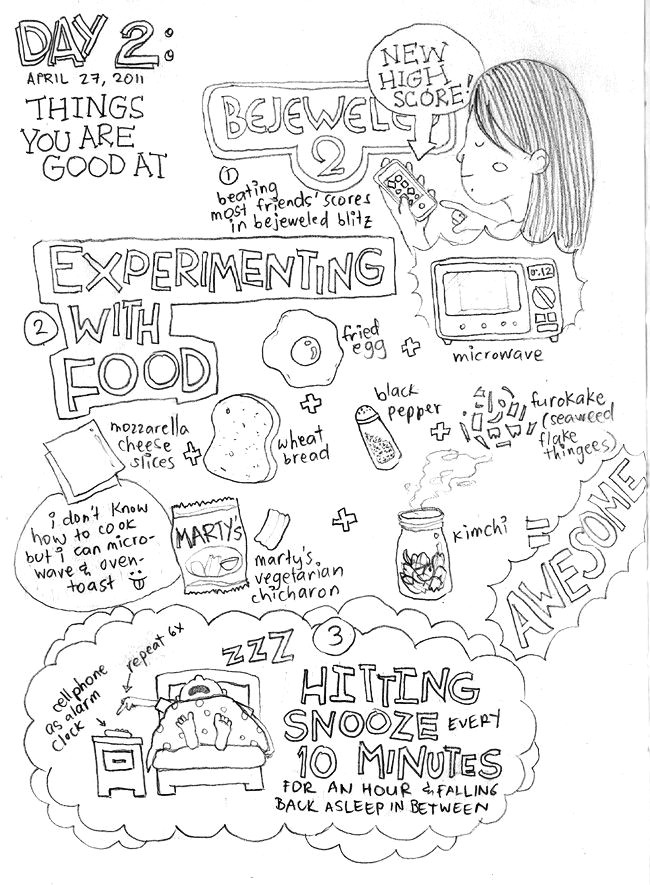 DAY 2:
APRIL 27, 2011
THINGS
YOU ARE
GOOD AT
NEW
HIGH
SCORE!
BEJEWELE
2
1
beating
most friends' scores
in bejeweled blitz
EXPERIMENTING
2 WITH
FOOD
0:12
microwave
fried
egg
+
+
mozzarella
cheese
slices
+
wheat
bread
black
pepper
+
furokake
(seaweed
flake
thingees)
i don't know
how to cook
but i can micro-
wave & oven-
toast
MARTY'S
marty's
vegetarian
chicharon
+
kimchi
=
AWESOME
3
ZZZ
repeat 6x
cellphone
as alarm
clock
HITTING
SNOOZE EVERY
10 MINUTES
FOR AN HOUR & FALLING
BACK ASLEEP IN BETWEEN